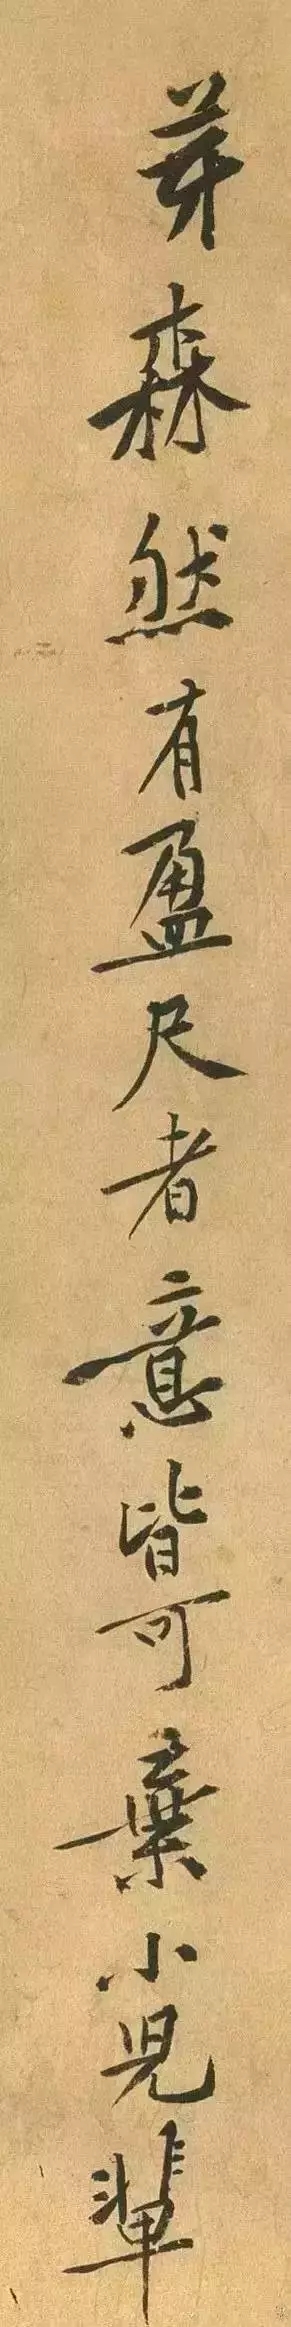 芽森然有盈尺者意皆可棄小兒輩